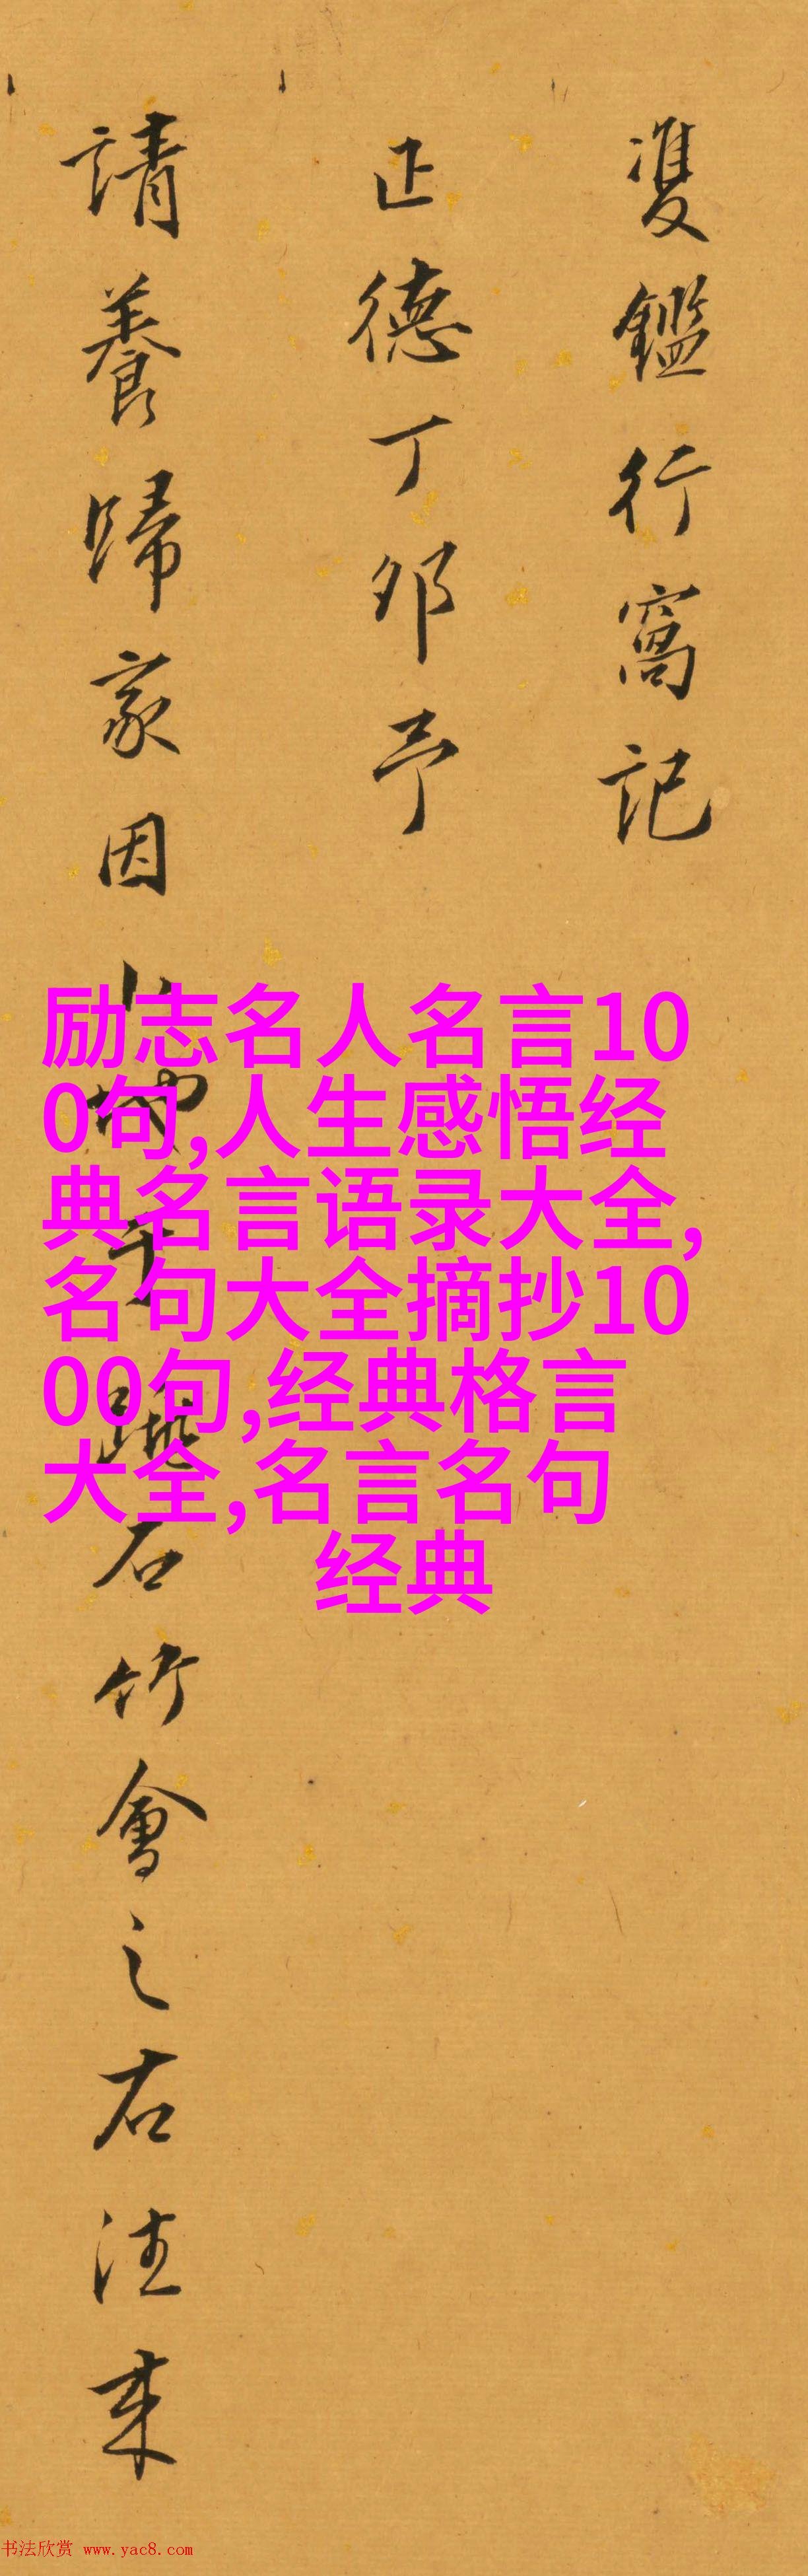 雙鑑行窩記
正德丁卯予
請養歸家因卜地于
石竹會之右往来
励志名人名言10
0句,人生感悟经
典名言语录大全,
名句大全摘抄10
00句,经典格言
大全,名言名句
经典
书法欣赏 www.yac8.com